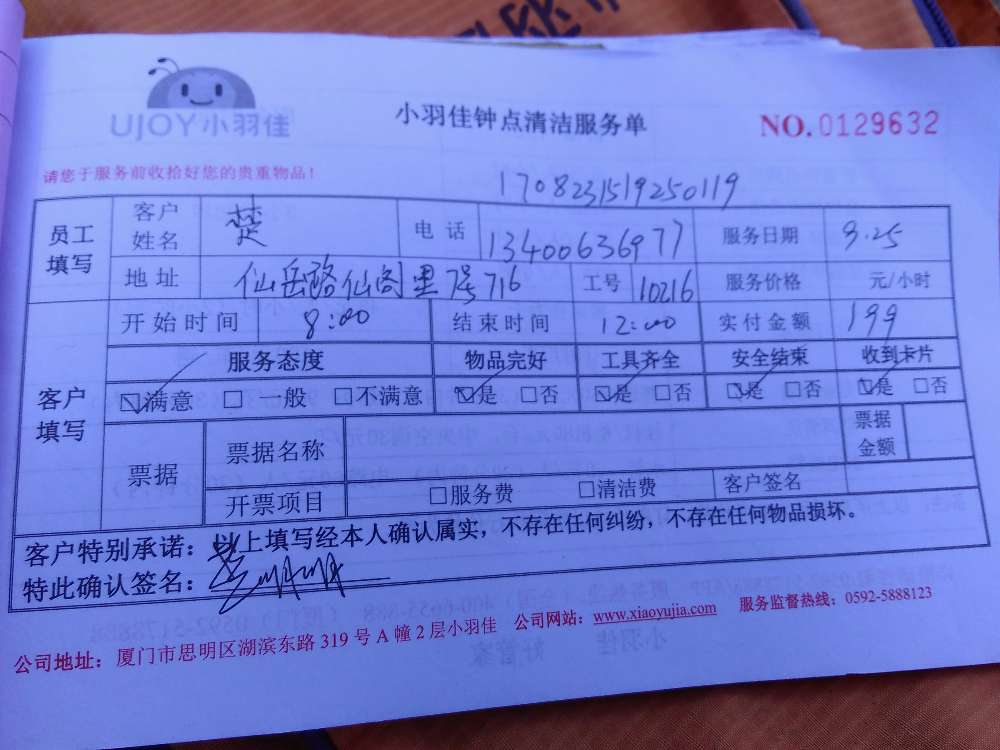 UJOY小羽佳
小羽佳钟点清洁服务单
NO.0129632
请您于服务前收拾好您的贵重物品!
1708231519250119
员工填写 客户姓名 楚 电话 13400636977 服务日期 9.25
地址 仙岳路仙阁里7号716 工号 10216 服务价格 元/小时
客户填写 开始时间 8:00 结束时间 12:00 实付金额 199
服务态度 物品完好 工具齐全 安全结束 收到卡片
☑满意 □一般 □不满意 ☑是 □否 ☑是 □否 ☑是 □否 ☑是 □否
票据 票据名称 票据金额
开票项目 □服务费 □清洁费 客户签名
客户特别承诺：以上填写经本人确认属实，不存在任何纠纷，不存在任何物品损坏。
特此确认签名：
公司地址：厦门市思明区湖滨东路 319 号 A 幢 2 层小羽佳 公司网站：www.xiaoyujia.com 服务监督热线：0592-5888123